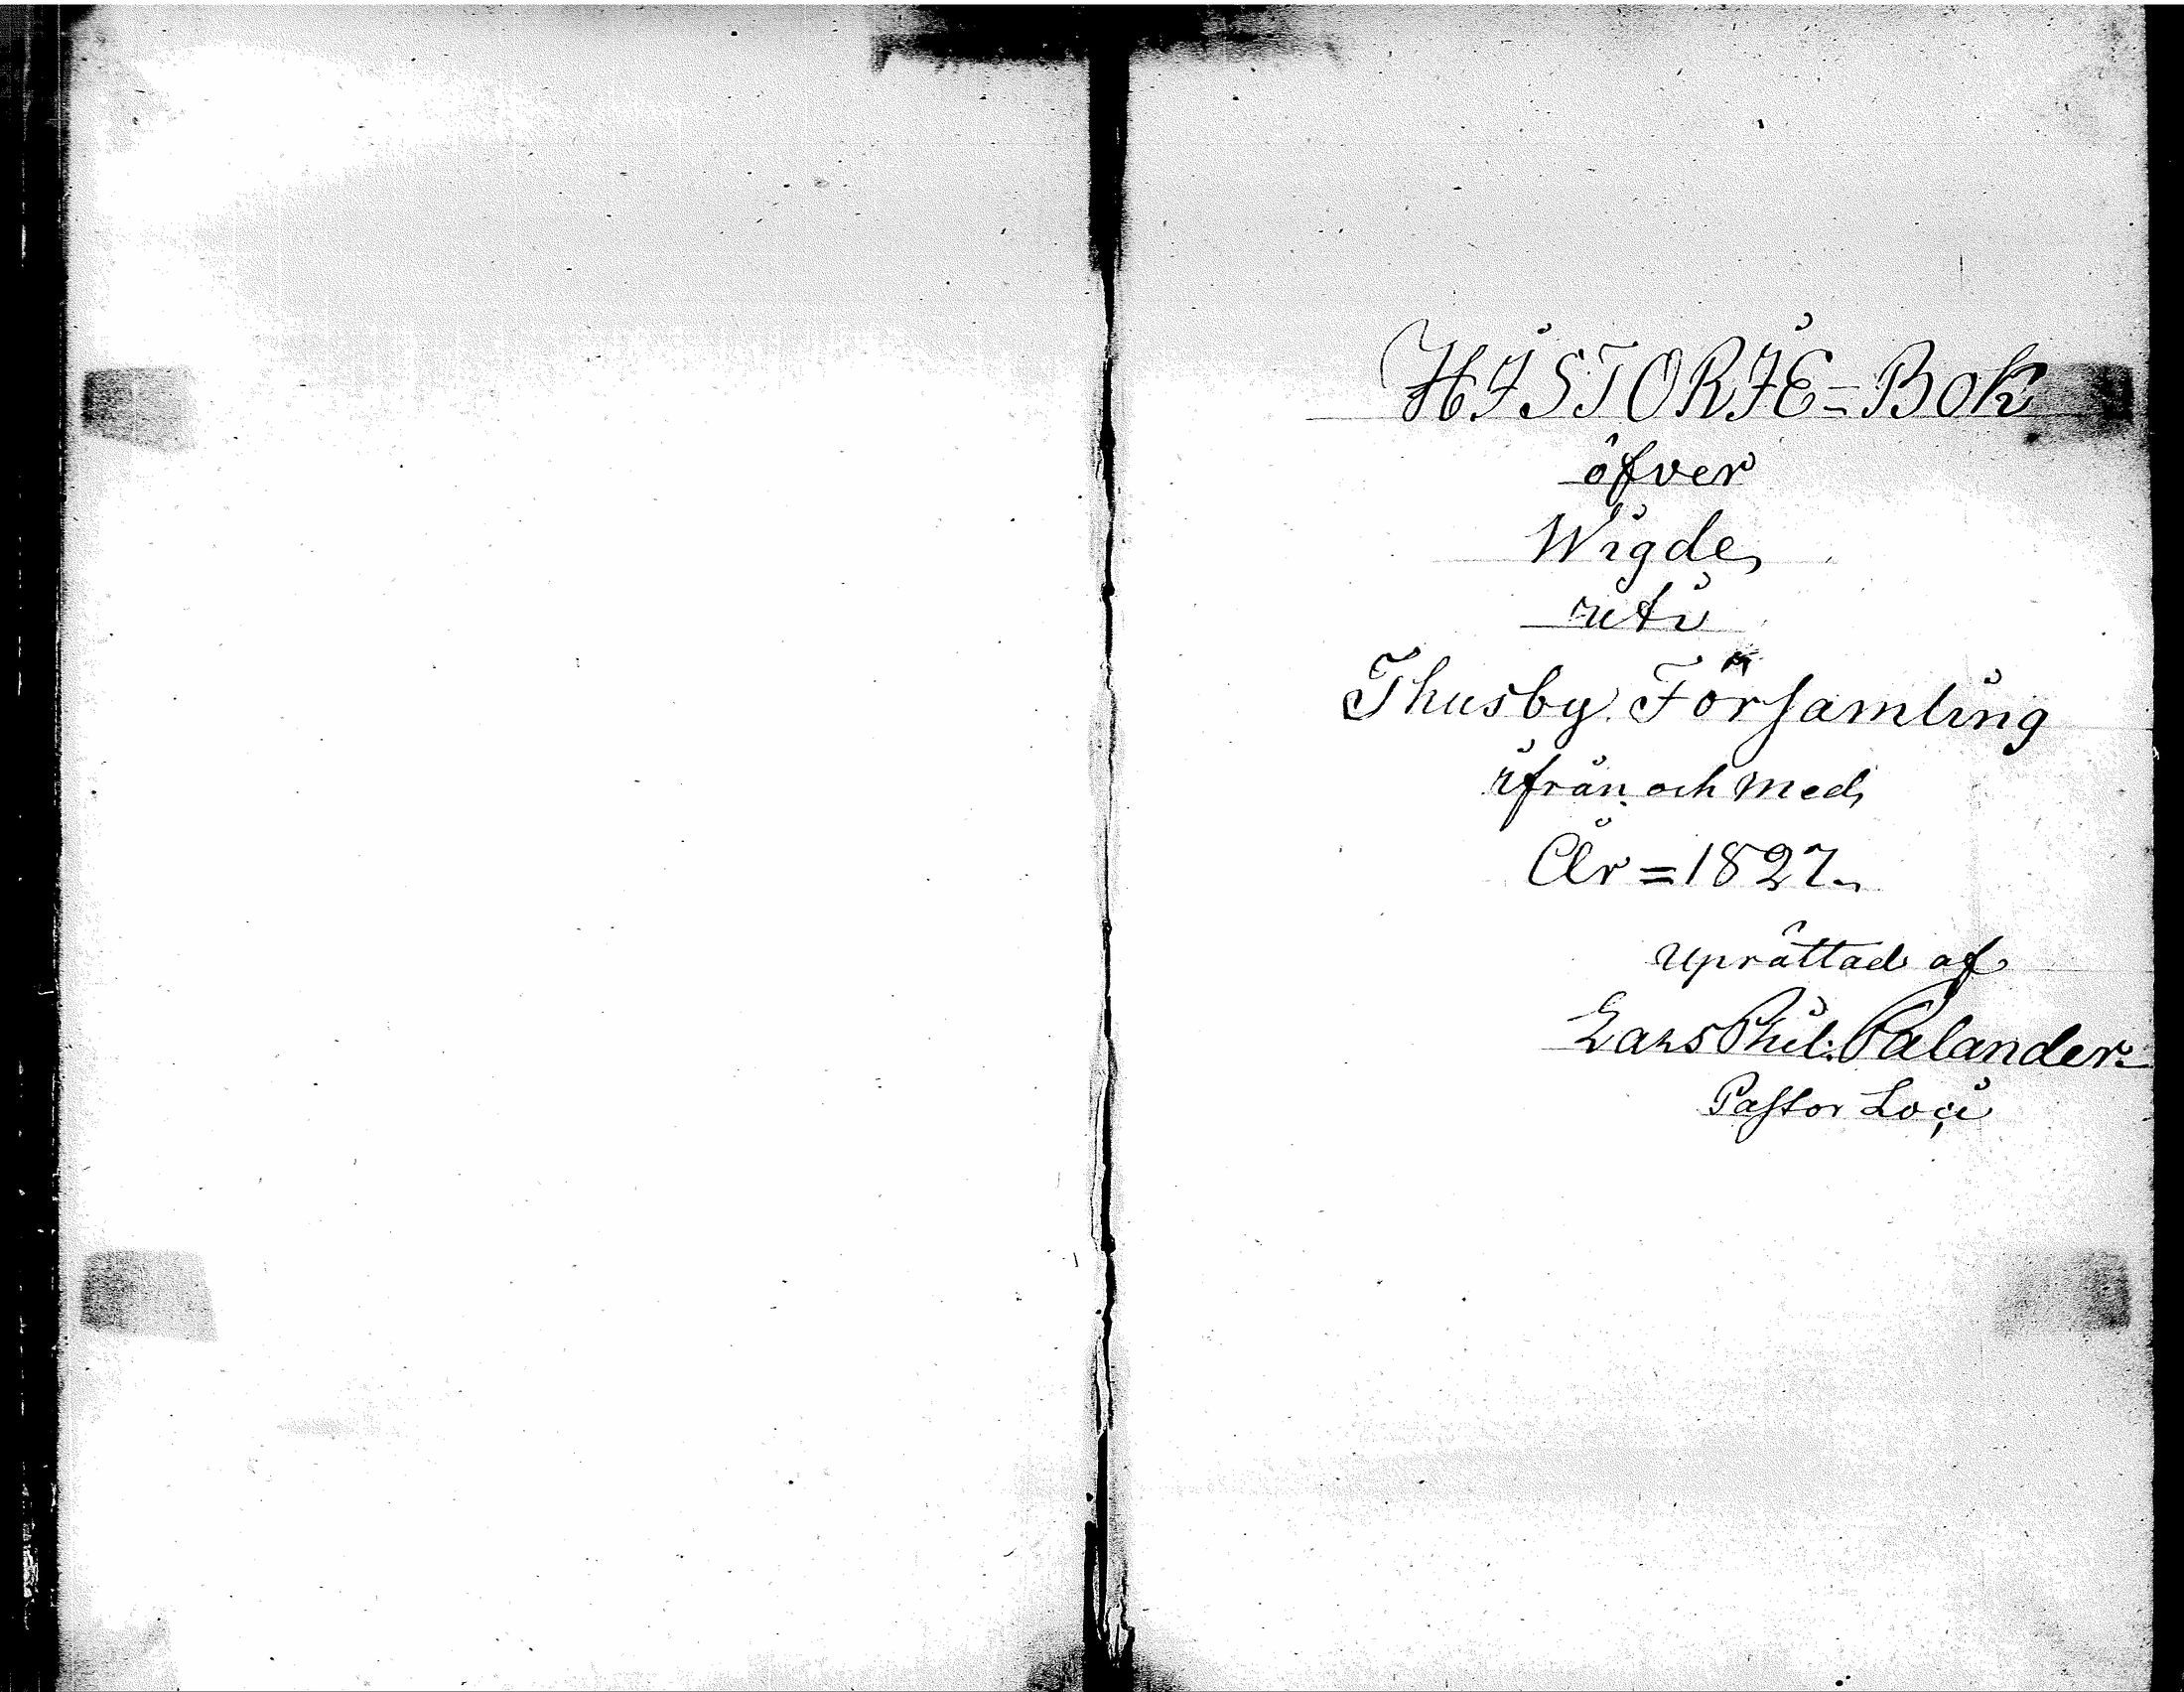 HISTORIE=Bok
öfver
Wigde
uti
Thusby Församling
ifrån och med
År = 1827.
Uprättad af
Lars Phil: Palander.
Pastor Loci